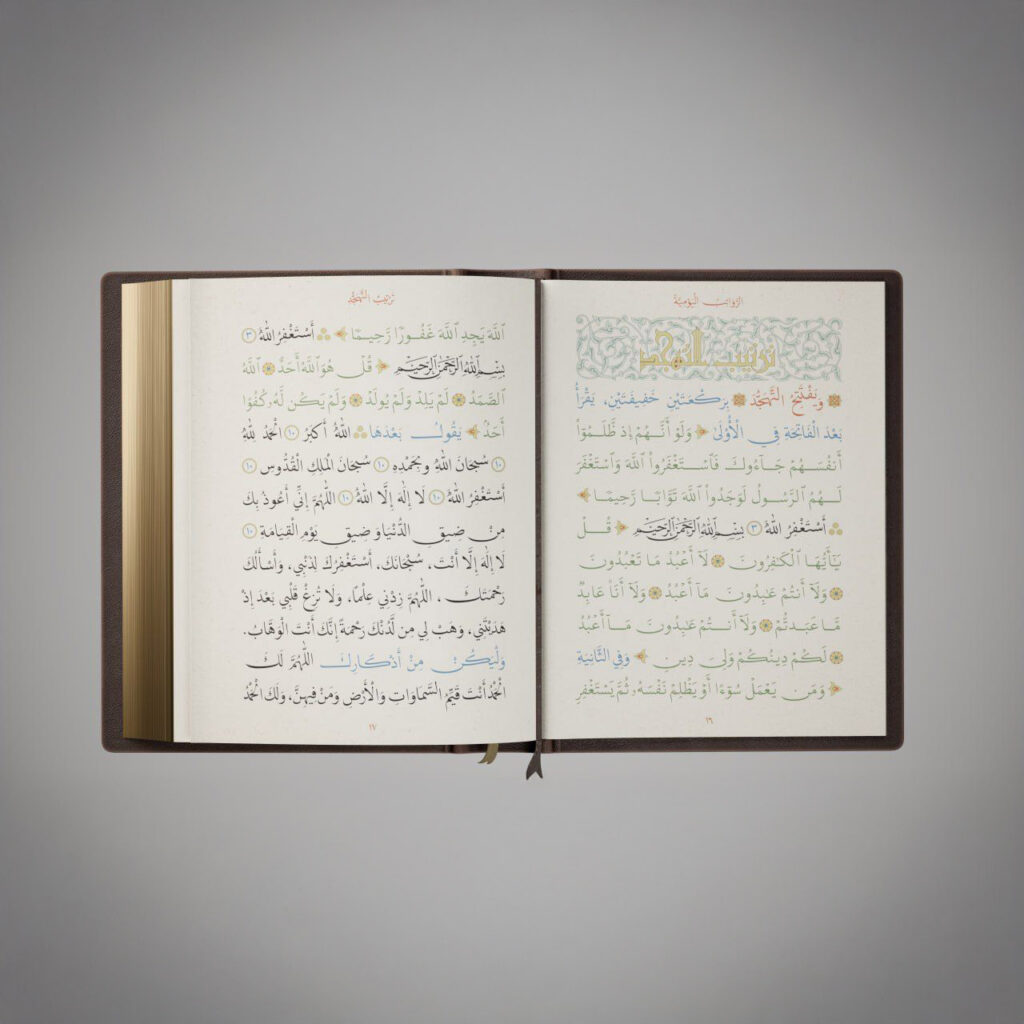 الرَّوَاتِبُ الْيَوْمِيَّةُ
تَرْتِيبُ التَّهَجُّدِ
وَيَفْتَتِحُ التَّهَجُّدَ بِرَكْعَتَيْنِ خَفِيفَتَيْنِ، يَقْرَأُ
بَعْدَ الْفَاتِحَةِ فِي الْأُولَىٰ وَلَوْ أَنَّهُمْ إِذ ظَّلَمُوٓا۟
أَنفُسَهُمْ جَآءُوكَ فَٱسْتَغْفَرُوا۟ ٱللَّهَ وَٱسْتَغْفَرَ
لَهُمُ ٱلرَّسُولُ لَوَجَدُوا۟ ٱللَّهَ تَوَّابًا رَّحِيمًا
أَسْتَغْفِرُ اللهَ ٣ بِسْمِ ٱللَّهِ ٱلرَّحْمَٰنِ ٱلرَّحِيمِ قُلْ
يَٰٓأَيُّهَا ٱلْكَٰفِرُونَ لَآ أَعْبُدُ مَا تَعْبُدُونَ
وَلَآ أَنتُمْ عَٰبِدُونَ مَآ أَعْبُدُ وَلَآ أَنَا۠ عَابِدٌ
مَّا عَبَدتُّمْ وَلَآ أَنتُمْ عَٰبِدُونَ مَآ أَعْبُدُ
لَكُمْ دِينُكُمْ وَلِىَ دِينِ وَفِي الثَّانِيَةِ
وَمَن يَعْمَلْ سُوٓءًا أَوْ يَظْلِمْ نَفْسَهُۥ ثُمَّ يَسْتَغْفِرِ
١٦
تَرْتِيبُ التَّهَجُّدِ
ٱللَّهَ يَجِدِ ٱللَّهَ غَفُورًا رَّحِيمًا أَسْتَغْفِرُ اللهَ ٣
بِسْمِ ٱللَّهِ ٱلرَّحْمَٰنِ ٱلرَّحِيمِ قُلْ هُوَ ٱللَّهُ أَحَدٌ ٱللَّهُ
ٱلصَّمَدُ لَمْ يَلِدْ وَلَمْ يُولَدْ وَلَمْ يَكُن لَّهُۥ كُفُوًا
أَحَدٌۢ يَقُولُ بَعْدَهَا اللهُ أَكْبَرُ ١٠ الْحَمْدُ لِلّٰهِ
١٠ سُبْحَانَ اللهِ وَبِحَمْدِهِ ١٠ سُبْحَانَ الْمَلِكِ الْقُدُّوسِ ١٠
أَسْتَغْفِرُ اللهَ ١٠ لَا إِلٰهَ إِلَّا اللهُ ١٠ اللّٰهُمَّ إِنِّي أَعُوذُ بِكَ
مِنْ ضِيقِ الدُّنْيَا وَضِيقِ يَوْمِ الْقِيَامَةِ ١٠
لَا إِلٰهَ إِلَّا أَنْتَ، سُبْحَانَكَ، أَسْتَغْفِرُكَ لِذَنْبِي، وَأَسْأَلُكَ
رَحْمَتَكَ، اللّٰهُمَّ زِدْنِي عِلْمًا، وَلَا تُزِغْ قَلْبِي بَعْدَ إِذْ
هَدَيْتَنِي، وَهَبْ لِي مِن لَّدُنْكَ رَحْمَةً إِنَّكَ أَنْتَ الْوَهَّابُ.
وَلْيَكُنْ مِنْ أَذْكَارِكَ اللّٰهُمَّ لَكَ
الْحَمْدُ أَنْتَ قَيِّمُ السَّمَاوَاتِ وَالْأَرْضِ وَمَنْ فِيهِنَّ، وَلَكَ الْحَمْدُ
١٧